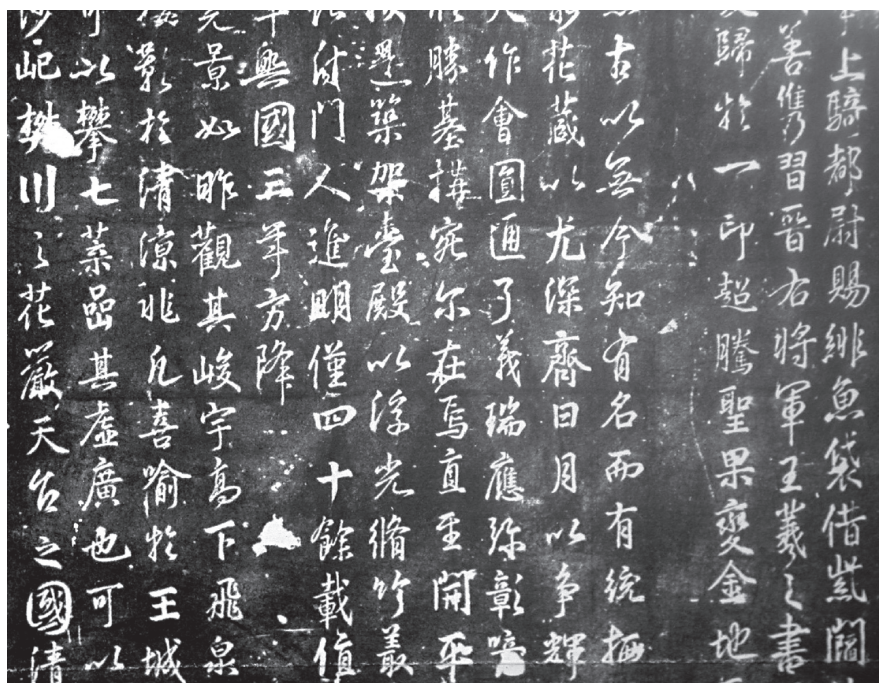 上騎都尉賜緋魚袋借紫閤
善儁習晉右將軍王羲之書
歸於一印超騰聖果變金地
古以無今知有名而有統
花藏以尤深齊日月以爭輝
作會圓通了義瑞應弥彰
勝基搆宛尔在焉直至開平
選築架臺殿以浮光脩竹叢
附門人進明僅四十餘載值
平興國三年方降
景如昨觀其峻宇高下飛泉
影於清涼非凡喜喻於王城
可以攀七葉嵒其虛廣也可以
屺樊川之花嚴天台之國清